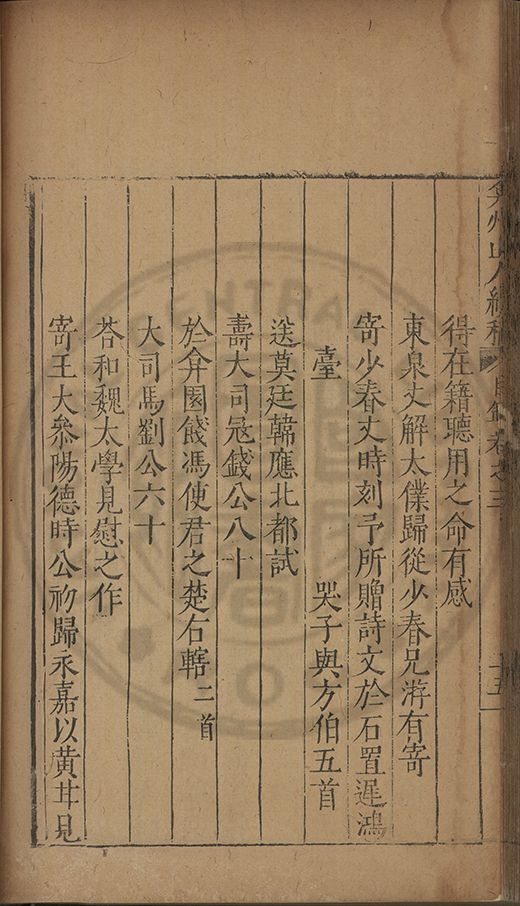 弇州山人續稿 目錄卷之三 十五
得在籍聽用之命有感
東泉丈解太僕歸從少春兄游有寄
寄少春丈時刻予所贈詩文於石置遲鴻
臺 哭子與方伯五首
送莫廷韓應北都試
壽大司寇錢公八十
於弇園餞馮使君之楚右轄二首
大司馬劉公六十
荅和魏太學見慰之作
寄王大叅陽德時公初歸永嘉以黃甘見